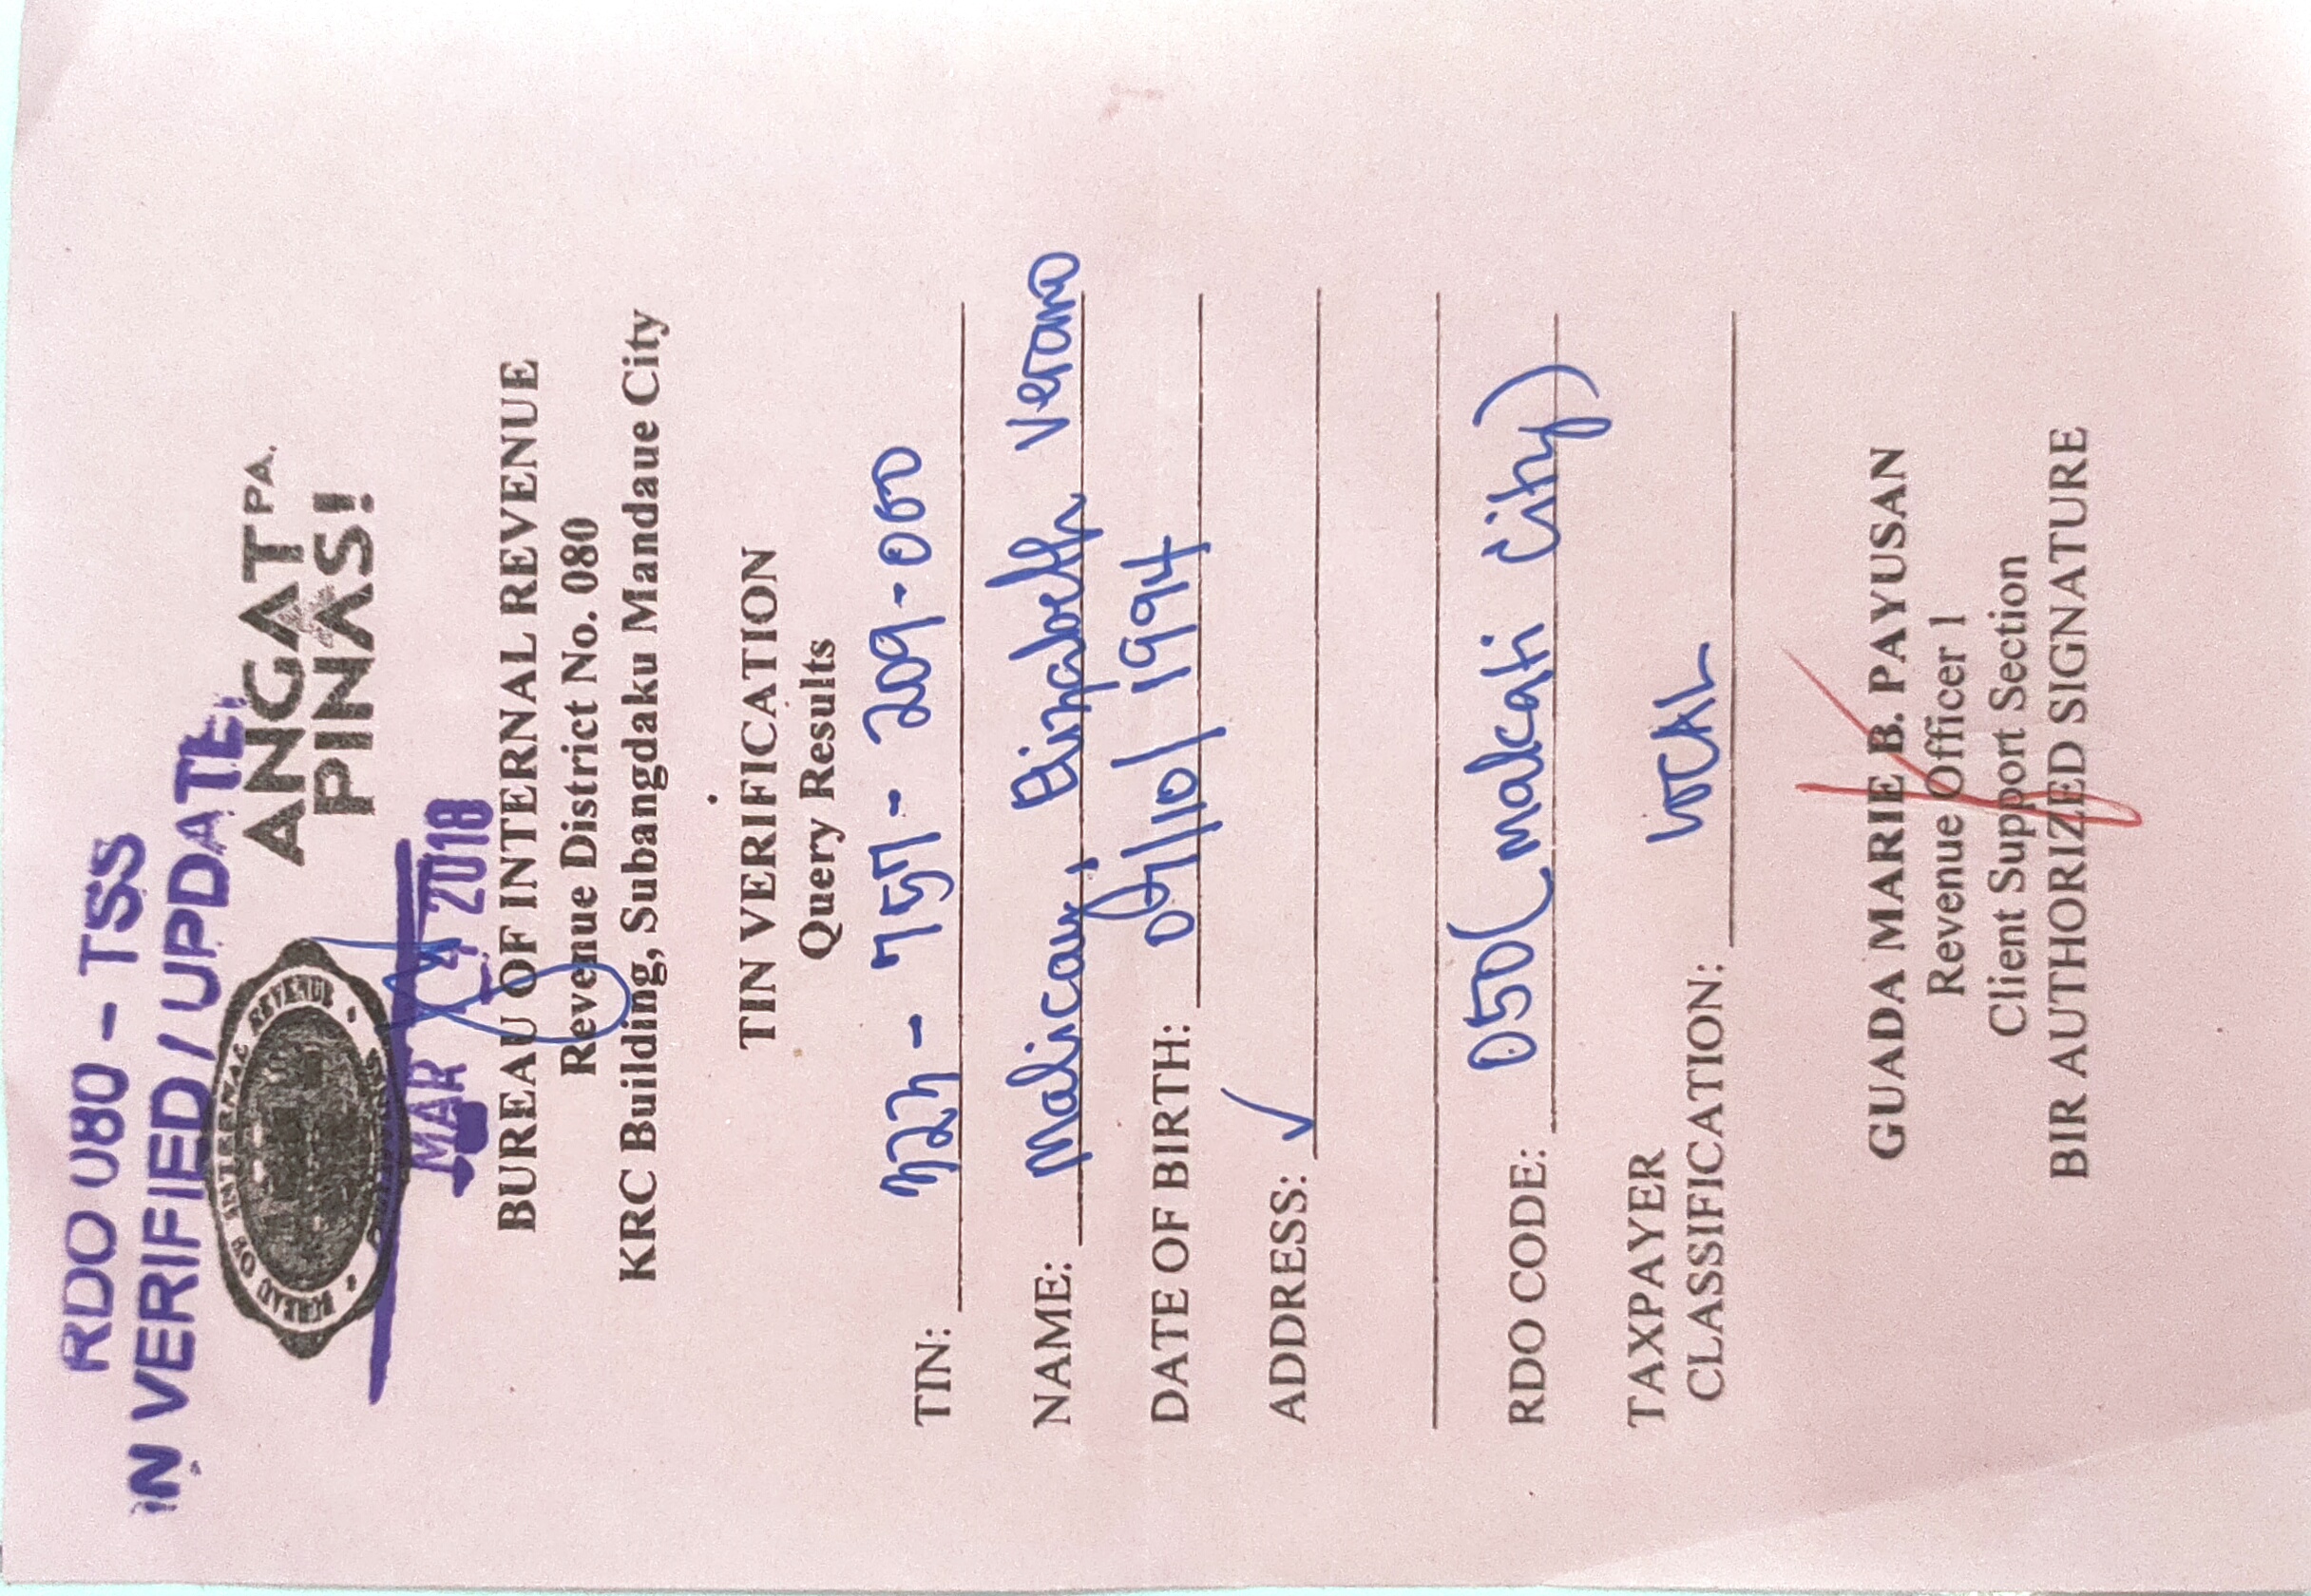 RDO 080 - TSS
IN VERIFIED / UPDATE
ANGAT PA.
PINAS!
BUREAU OF INTERNAL REVENUE
MAR 2018
BUREAU OF INTERNAL REVENUE
Revenue District No. 080
KRC Building, Subangdaku Mandaue City
TIN VERIFICATION
Query Results
TIN: 323 - 757 - 209 - 000
NAME: Malicay, Elizabeth Verano
DATE OF BIRTH: 07/10/1994
ADDRESS: ✓
RDO CODE: 050 (Makati City)
TAXPAYER
CLASSIFICATION: LOCAL
GUADA MARIE B. PAYUSAN
Revenue Officer 1
Client Support Section
BIR AUTHORIZED SIGNATURE